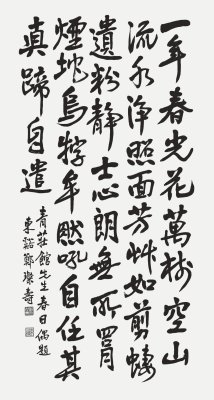 一年春光花萬樹空山
流水淨照面芳艸如剪蜨
遺粉靜士心朗無所罥
煙地烏牸牟黙吼自任其
真蹄自遣
青莊館先生春日偶題
東谿鄭燦壽